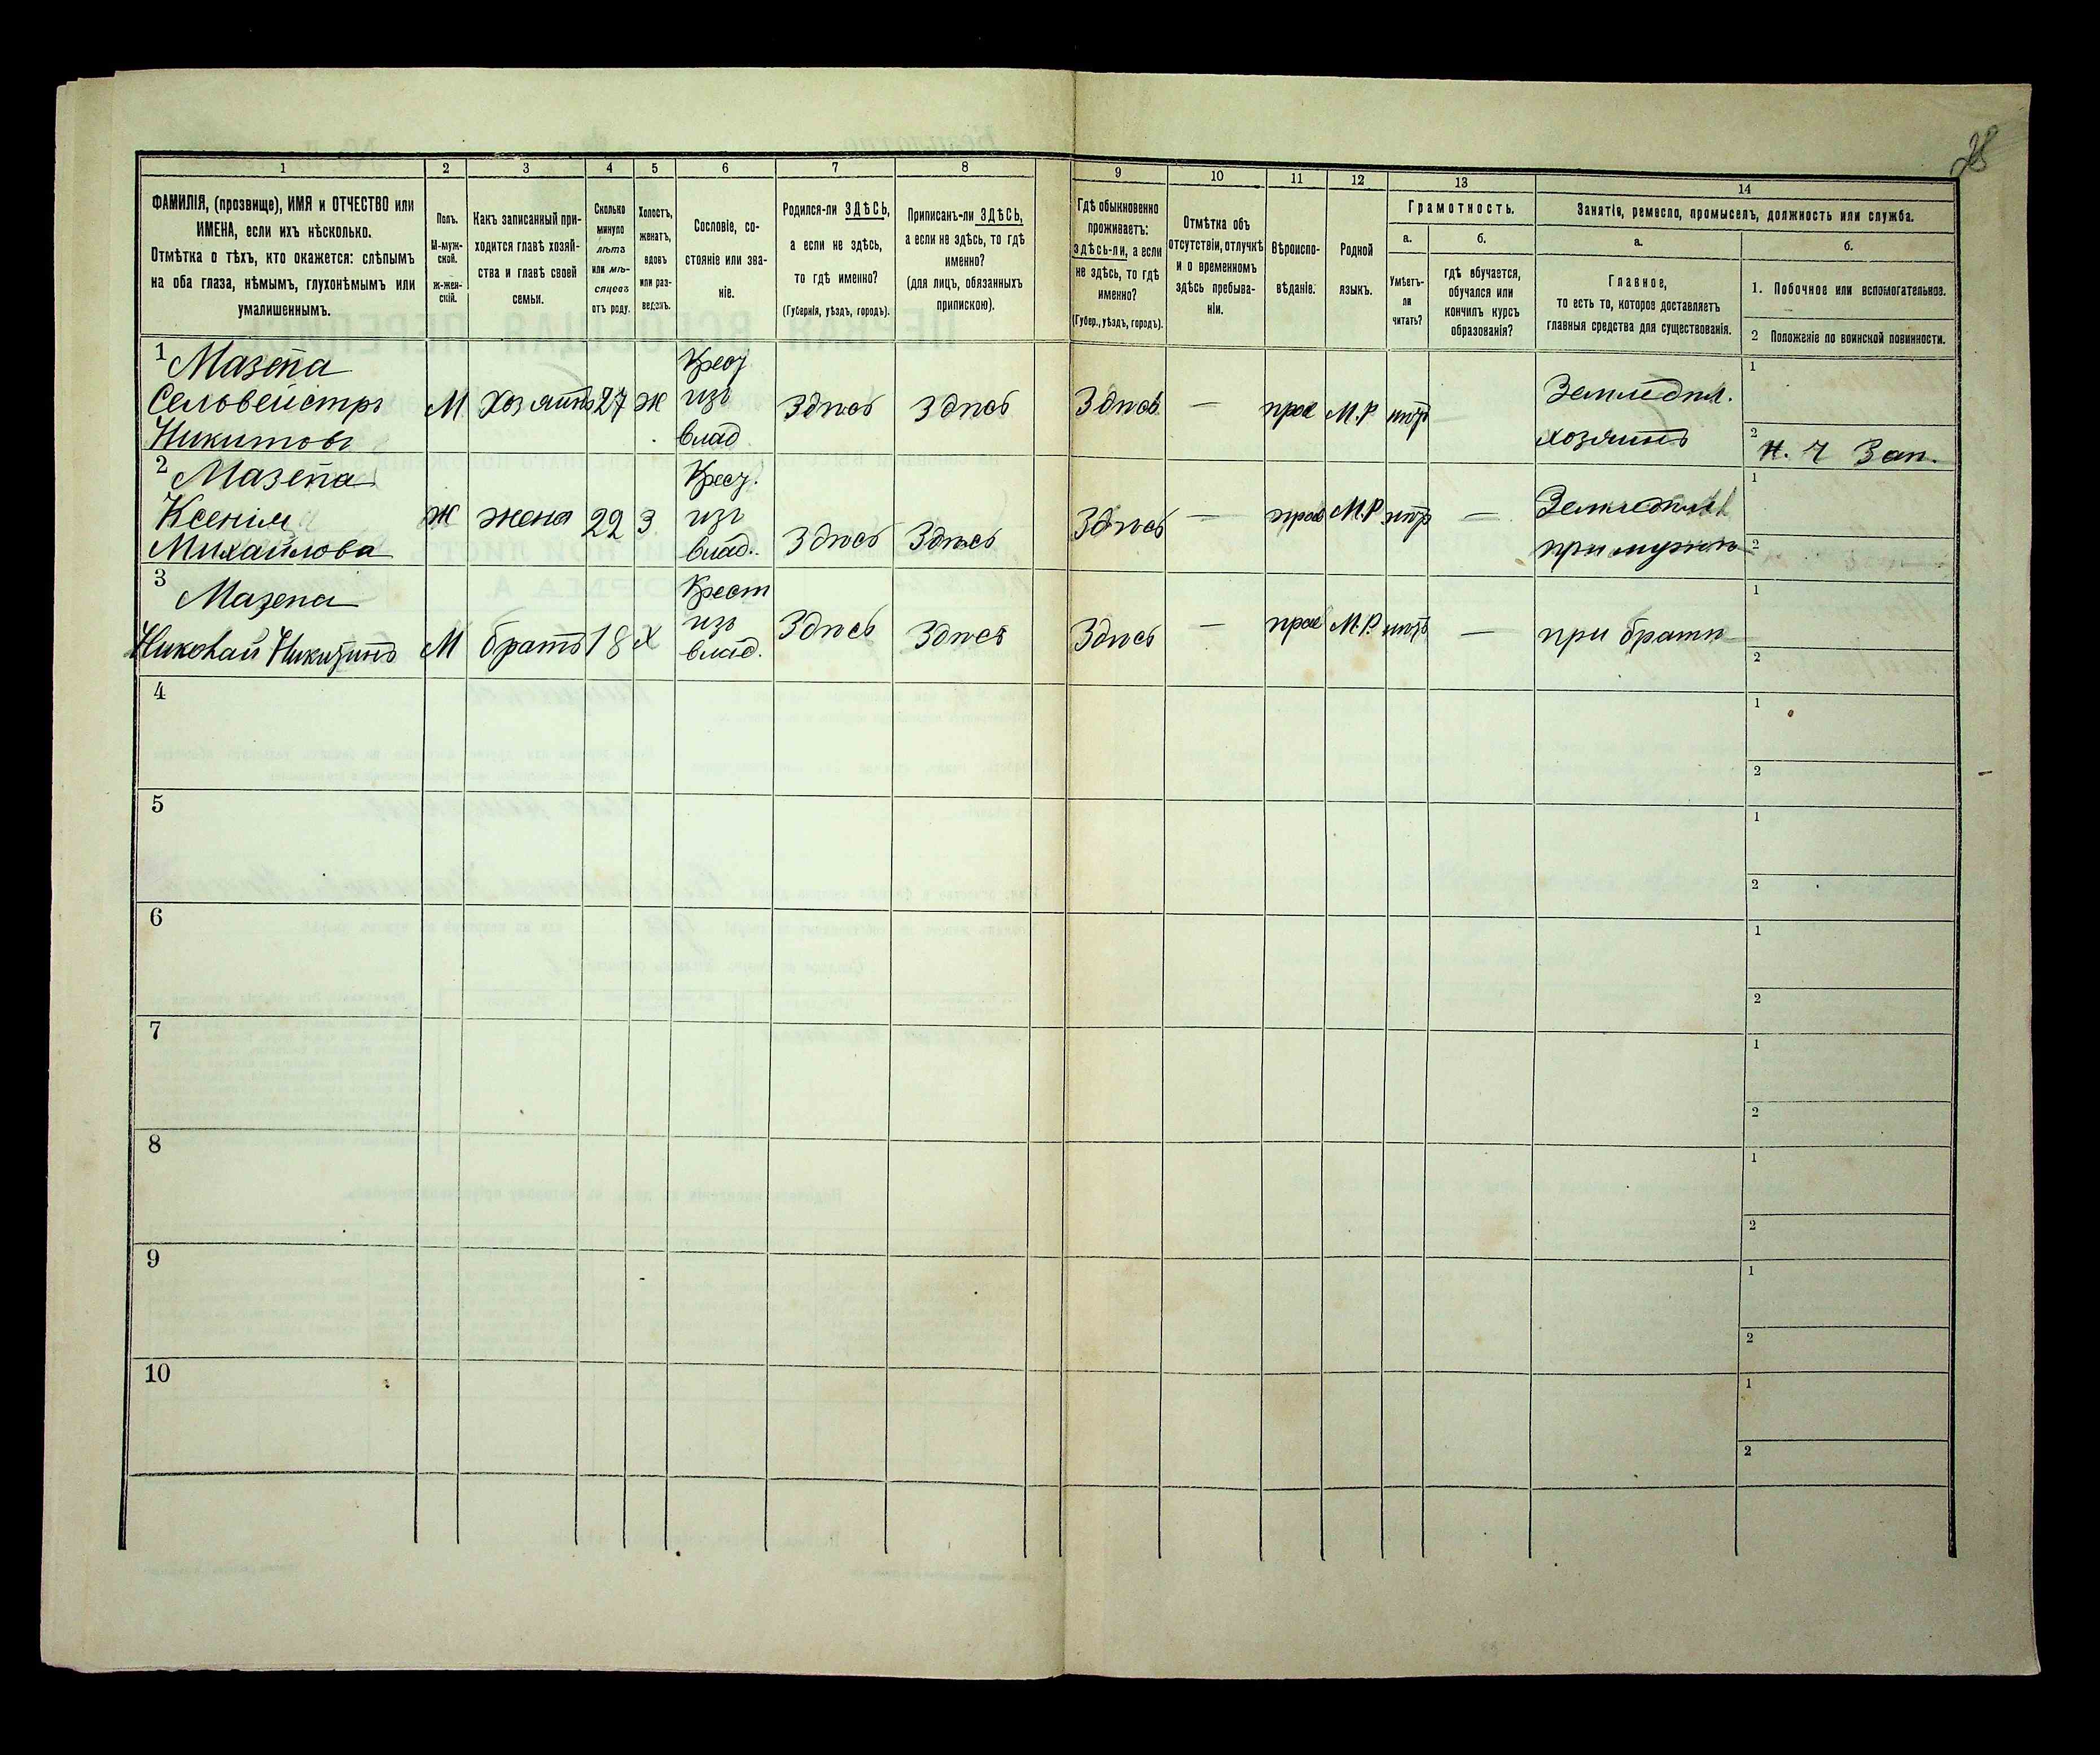 28
1 2 3 4 5 6 7 8 9 10 11 12 13 14
ФАМИЛІЯ, (прозвище), ИМЯ и ОТЧЕСТВО или
ИМЕНА, если ихъ нѣсколько.
Отмѣтка о тѣхъ, кто окажется: слѣпымъ
на оба глаза, нѣмымъ, глухонѣмымъ или
умалишеннымъ.
Полъ.
М-муж-
ской.
ж-жен-
скій.
Какъ записанный при-
ходится главѣ хозяй-
ства и главѣ своей
семьи.
Сколько
минуло
лѣтъ
или мѣ-
сяцевъ
отъ роду.
Холостъ,
женатъ,
вдовъ
или раз-
веденъ.
Сословіе, со-
стояніе или зва-
ніе.
Родился-ли ЗДѢСЬ,
а если не здѣсь,
то гдѣ именно?
(Губернія, уѣздъ, городъ).
Приписанъ-ли ЗДѢСЬ,
а если не здѣсь, то гдѣ
именно?
(для лицъ, обязанныхъ
припискою).
Гдѣ обыкновенно
проживаетъ:
здѣсь-ли, а если
не здѣсь, то гдѣ
именно?
(Губер., уѣздъ, городъ).
Отмѣтка объ
отсутствіи, отлучкѣ
и о временномъ
здѣсь пребыва-
ніи.
Вѣроиспо-
вѣданіе.
Родной
языкъ.
Грамотность.
а.
Умѣетъ-
ли
читать?
б.
гдѣ обучается,
обучался или
кончилъ курсъ
образованія?
Занятія, ремесло, промыселъ, должность или служба.
а.
Главное,
то есть то, которое доставляетъ
главныя средства для существованія.
б.
1. Побочное или вспомогательное.
2 Положеніе по воинской повинности.
1 Мазепа
Сельвейстръ
Никитовъ
М
Хозяинъ
27
Ж
из
влад
Здѣсь
Здѣсь
Здѣсь
—
прав
М.Р
нѣтъ
—
Земледѣл.
хозяинъ
1
2
Зап.
2 Мазепа
Ксенія
Михайлова
Ж
жена
22
З
изъ
влад.
Здѣсь
Здѣсь
Здѣсь
—
прав
М.Р
нѣтъ
—
при мужѣ
1
2
3 Мазепа
Николай Никитинъ
М
братъ
18
Х
Крест
изъ
влад.
Здѣсь
Здѣсь
Здѣсь
—
прав
М.Р.
нѣтъ
—
при братѣ
1
2
4
1
2
5
1
2
6
1
2
7
1
2
8
1
2
9
1
2
10
1
2